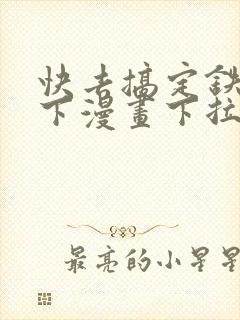 快去搞定鉄
下漫畫下拉
最亮的小星星